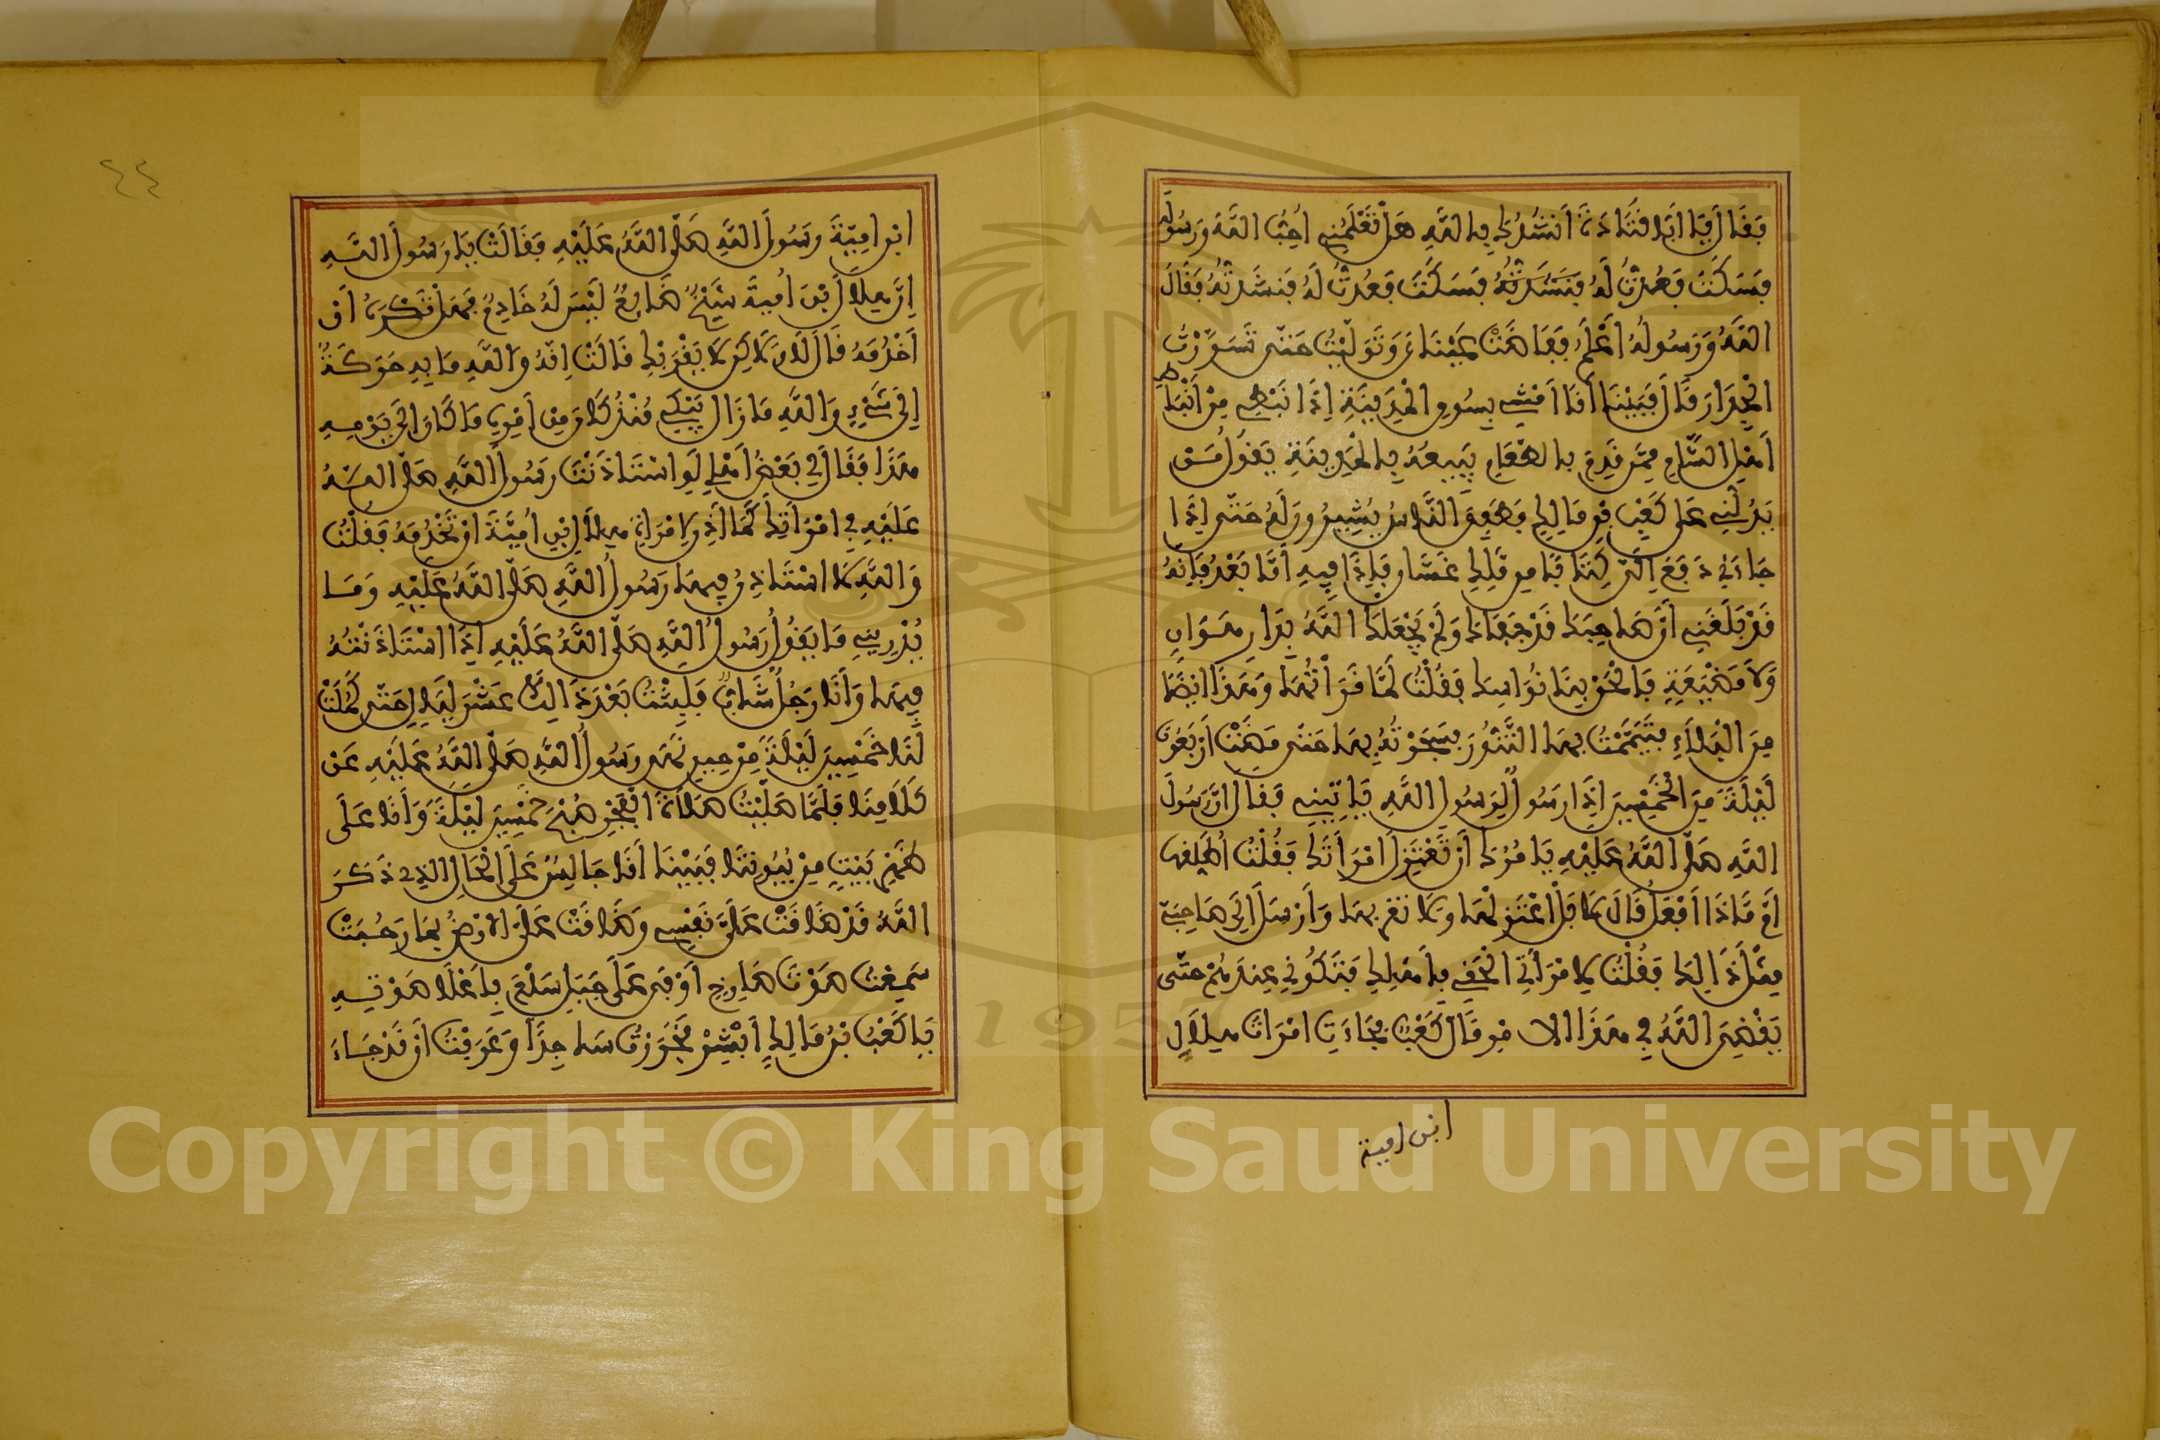 فَقَالَ يَا أَبَا قَتَادَةَ أَنْشُدُكَ بِاللَّهِ هَلْ تَعْلَمُنِي أُحِبُّ اللَّهَ وَرَسُولَهُ
فَسَكَتَ فَعُدْتُ لَهُ فَنَشَدْتُهُ فَسَكَتَ فَعُدْتُ لَهُ فَنَشَدْتُهُ فَقَالَ
اللَّهُ وَرَسُولُهُ أَعْلَمُ فَفَاضَتْ عَيْنَايَ وَتَوَلَّيْتُ حَتَّى تَسَوَّرْتُ
الْجِدَارَ قَالَ فَبَيْنَا أَنَا أَمْشِي بِسُوقِ الْمَدِينَةِ إِذَا نَبَطِي مِنْ أَنْبَاطِ
أَهْلِ الشَّامِ مِمَّن قَدِمَ بِالطَّعَامِ يَبِيعُهُ بِالْمَدِينَةِ يَقُولُ مَن
يَدُلُّنِي عَلَى كَعْبِ بْنِ مَالِكٍ فَطَفِقَ النَّاسُ يُشِيرُونَ لَهُ حَتَّى إِذَا
جَاءَنِي دَفَعَ إِلَيَّ كِتَابًا مِن مَّلِكِ غَسَّانَ فَإِذَا فِيهِ أَمَّا بَعْدُ فَإِنَّهُ
قَدْ بَلَغَنِي أَنَّ صَاحِبَكَ قَدْ جَفَاكَ وَلَمْ يَجْعَلْكَ اللَّهُ بِدَارِ هَوَانٍ
وَلَا مَضْيَعَةٍ فَالْحَقْ بِنَا نُوَاسِكَ فَقُلْتُ لَمَّا قَرَأْتُهَا وَهَذَا أَيْضًا
مِنَ الْبَلَاءِ فَتَيَمَّمْتُ بِهَا التَّنُّورَ فَسَجَرْتُهُ بِهَا حَتَّى مَضَتْ أَرْبَعُونَ
لَيْلَةً مِنَ الْخَمْسِينَ إِذَا رَسُولٌ لِرَسُولِ اللَّهِ يَاتِينِي فَقَالَ إِنَّ رَسُولَ
اللَّهِ صَلَّى اللَّهُ عَلَيْهِ يَامُرُكَ أَنْ تَعْتَزِلَ امْرَأَتَكَ فَقُلْتُ أُطَلِّقُهَا
أَمْ مَّاذَا أَفْعَلُ قَالَ لَا بَلْ اعْتَزِلْهَا وَلَا تَقْرَبْهَا وَأَرْسَلَ إِلَى صَاحِبَيَّ
مِثْلَ ذَلِكَ فَقُلْتُ لِامْرَأَتِي الْحَقِي بِأَهْلِكِ فَتَكُونِي عِنْدَهُمْ حَتَّى
يَقْضِيَ اللَّهُ فِي هَذَا الامْرِ قَالَ كَعْبٌ فَجَاءَتِ امْرَأَتُ هِلَالِ
ابن امية
ابْنِ أُمَيَّةَ رَسُولَ اللَّهِ صَلَّى اللَّهُ عَلَيْهِ فَقَالَتْ يَا رَسُولَ اللَّهِ
إِنَّ هِلَالَ بْنَ أُمَيَّةَ شَيْخٌ ضَايِعٌ لَيْسَ لَهُ خَادِمٌ فَهَلْ تَكْرَهُ أَنْ
أَخْدُمَهُ قَالَ لَا وَلَكِنْ لَا يَقْرَبْكِ قَالَتْ إِنَّهُ وَاللَّهِ مَا بِهِ حَرَكَةٌ
إِلَى شَيْءٍ وَاللَّهِ مَا زَالَ يَبْكِي مُنْذُ كَانَ مِنْ أَمْرِهِ مَا كَانَ إِلَى يَوْمِهِ
هَذَا فَقَالَ لِي بَعْضُ أَهْلِي لَوِ اسْتَاذَنْتَ رَسُولَ اللَّهِ صَلَّى اللَّهُ
عَلَيْهِ فِي امْرَأَتِكَ كَمَا أَذِنَ لِامْرَأَةِ هِلَالِ ابْنِ أُمَيَّةَ أَنْ تَخْدُمَهُ فَقُلْتُ
وَاللَّهِ لَا اسْتَاذِنُ فِيهَا رَسُولَ اللَّهِ صَلَّى اللَّهُ عَلَيْهِ وَمَا
يُدْرِينِي مَا يَقُولُ رَسُولُ اللَّهِ صَلَّى اللَّهُ عَلَيْهِ إِذَا اسْتَاذَنْتُهُ
فِيهَا وَأَنَا رَجُلٌ شَابٌّ فَلَبِثْتُ بَعْدَ ذَالِكَ عَشْرَ لَيَالٍ حَتَّى كَمُلَتْ
لَنَا خَمْسِينَ لَيْلَةً مِنْ حِينِ نَهَى رَسُولُ اللَّهِ صَلَّى اللَّهُ عَلَيْهِ عَنْ
كَلَامِنَا فَلَمَّا صَلَّيْتُ صَلَاةَ الْفَجْرِ صُبْحَ خَمْسِينَ لَيْلَةً وَأَنَا عَلَى
ظَهْرِ بَيْتٍ مِنْ بُيُوتِنَا فَبَيْنَا أَنَا جَالِسٌ عَلَى الْحَالِ الَّذِي ذَكَرَ
اللَّهُ قَدْ ضَاقَتْ عَلَيَّ نَفْسِي وَضَاقَتْ عَلَيَّ الارْضُ بِمَا رَحُبَتْ
سَمِعْتُ صَوْتَ صَارِخٍ أَوْفَى عَلَى جَبَلِ سَلْعَ بِأَعْلَا صَوْتِهِ
يَا كَعْبُ بْنُ مَالِكٍ أَبْشِرْ فَخَرَرْتُ سَاجِدًا وَعَرَفْتُ أَنْ قَدْ جَاءَ
٤٤
Copyright © King Saud University
1957